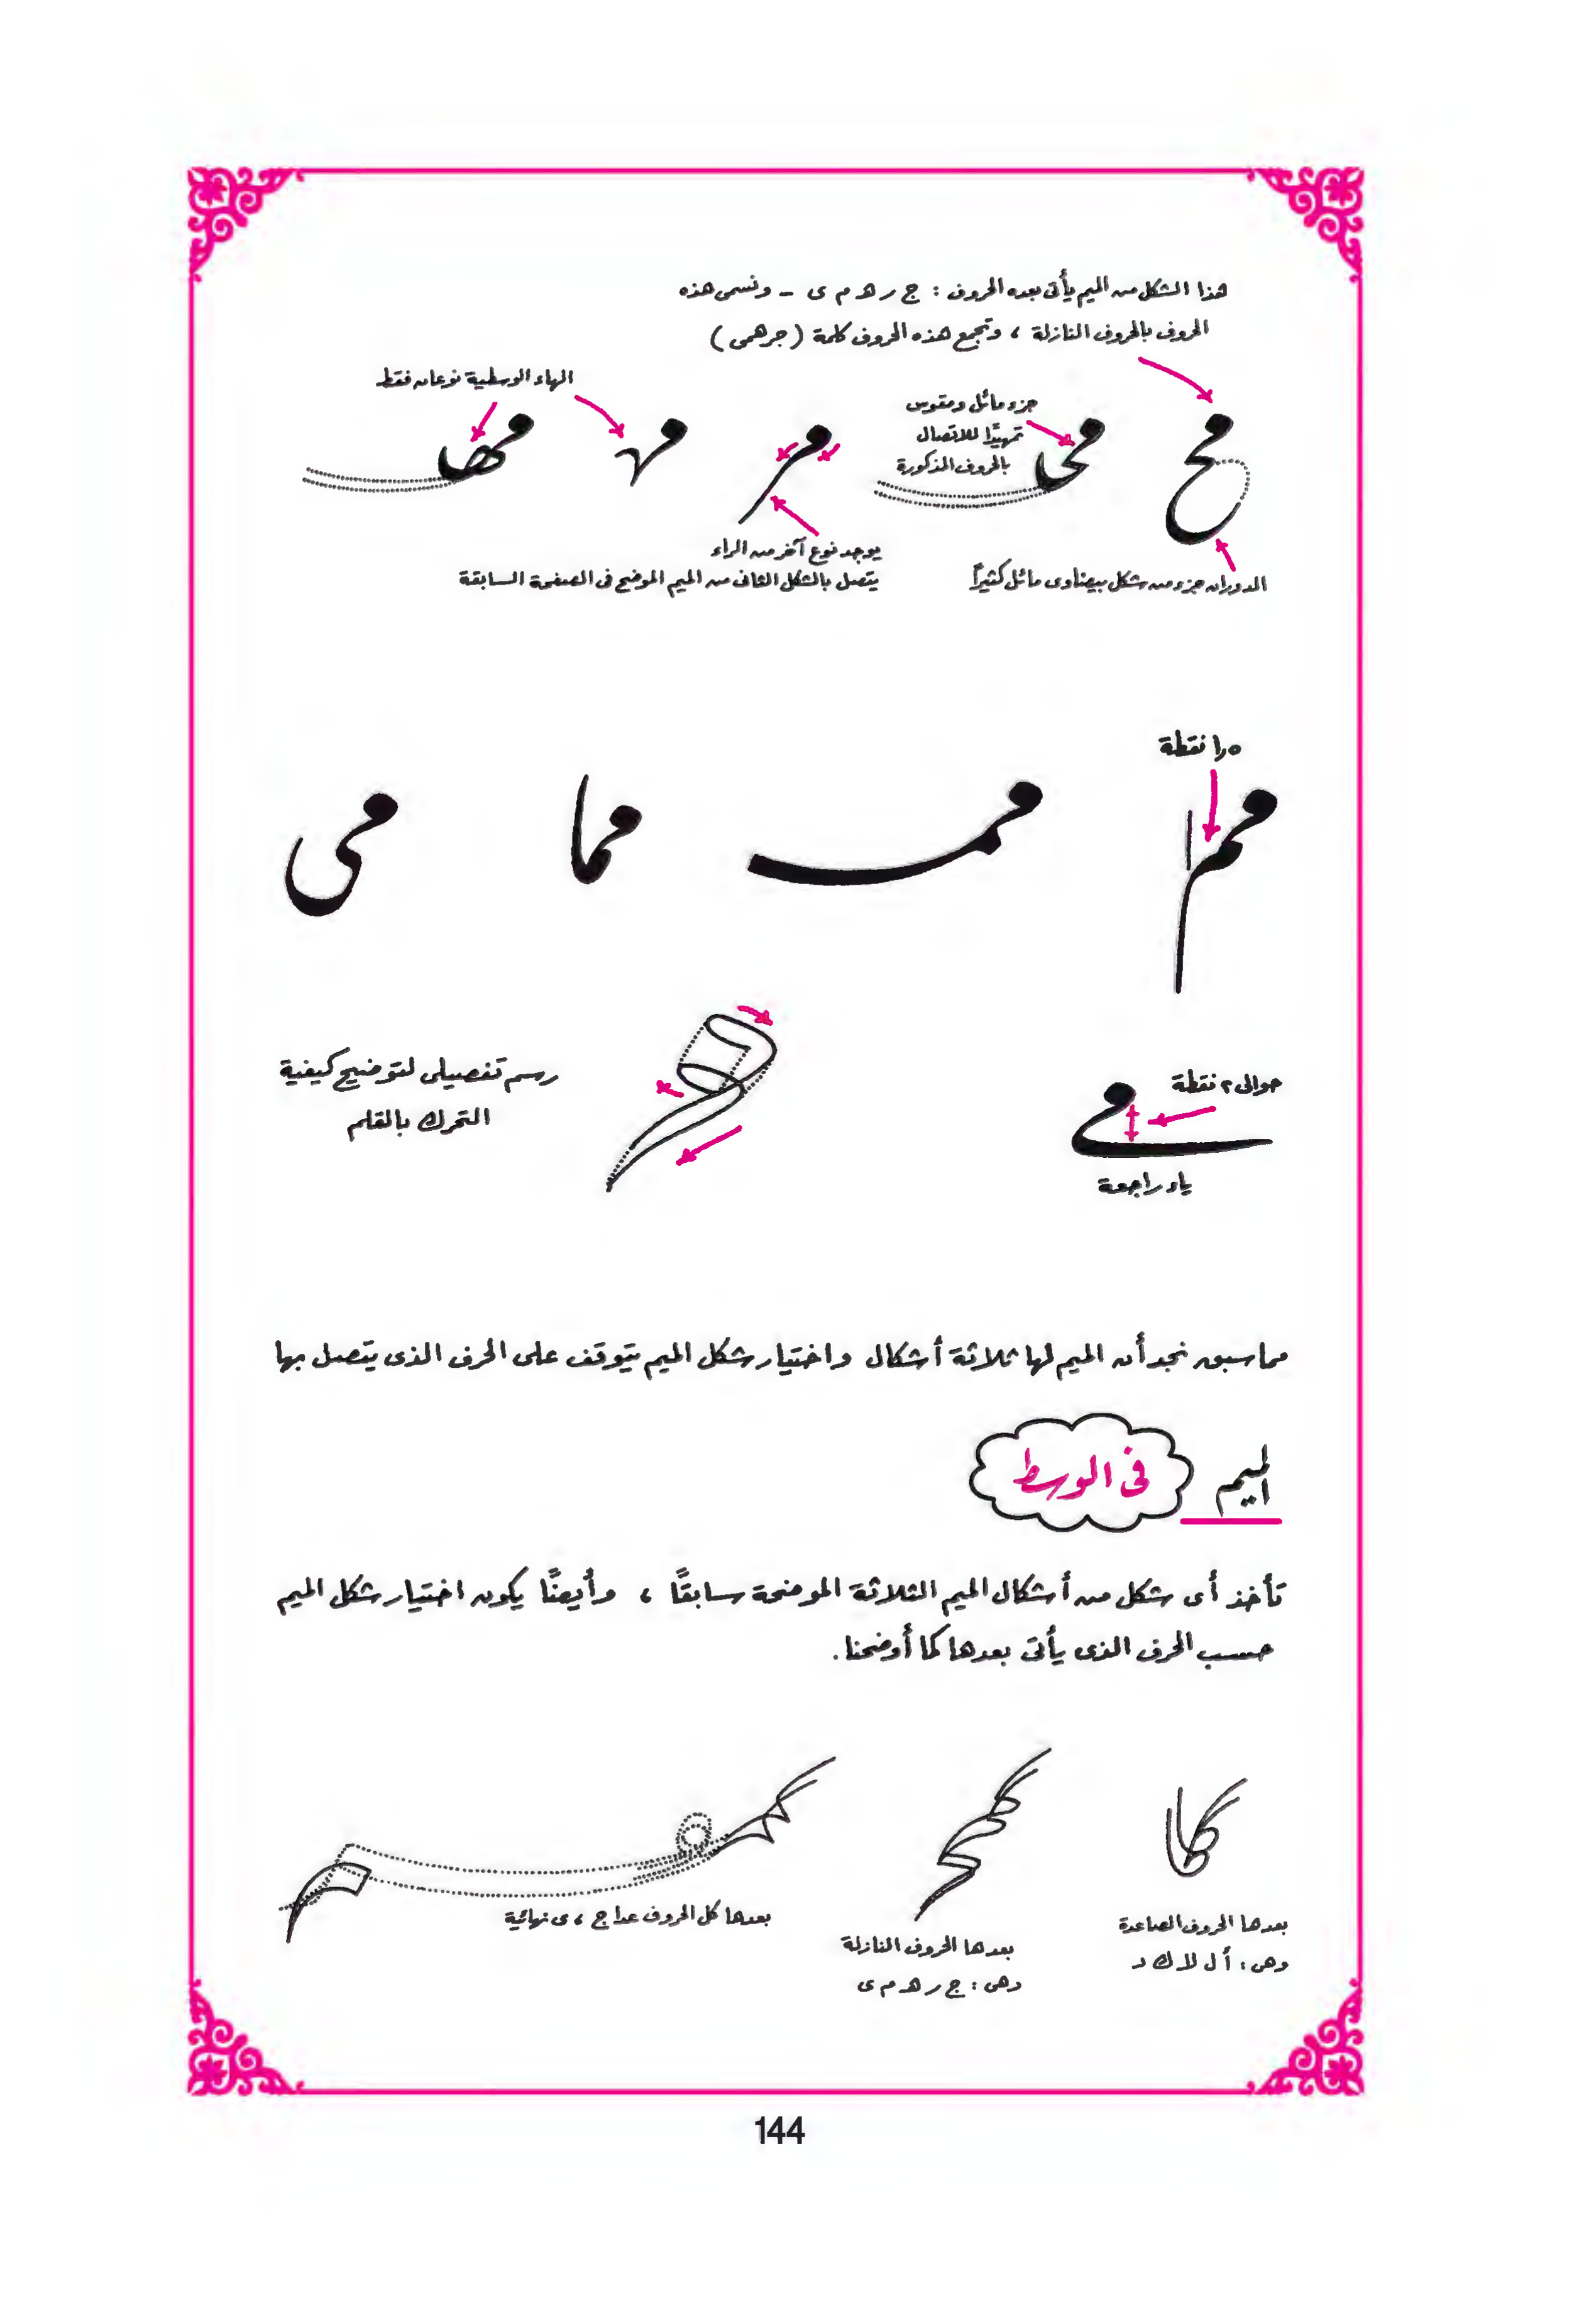 هذا الشكل من الميم يأتى بعده الحروف : ج ر هـ م ى - ونسمى هذه
الحروف بالحروف النازلة ، وتجمع هذه الحروف كلمة ( جرهمى )
الهاء الوسطية نوعان فقط
جزء مائل ومقوس
تمهيدًا للاتصال
بالحروف المذكورة
مح
محى
مر
مهـ
مها
يوجد نوع آخر من الراء
يتصل بالشكل الثانى من الميم الموضح فى الصفحة السابقة
الدوران جزء من شكل بيضاوى مائل كثيرًا
١٫٥ نقطة
ممم
ممـ
مما
مى
حوالى ٢ نقطة
مى
ياء راجعة
رسم تفصيلى لتوضيح كيفية
التحرك بالقلم
مما سبق نجد أن الميم لها ثلاثة أشكال واختيار شكل الميم يتوقف على الحرف الذى يتصل بها
الميم فى الوسط
تأخذ أى شكل من أشكال الميم الثلاثة الموضحة سابقًا ، وأيضًا يكون اختيار شكل الميم
حسب الحرف الذى يأتى بعدها كما أوضحنا .
بعدها الحروف الصاعدة
وهى : أ ل لا ك د
بعدها الحروف النازلة
وهى : ج ر هـ م ى
بعدها كل الحروف عدا ج ، ى نهائية
144